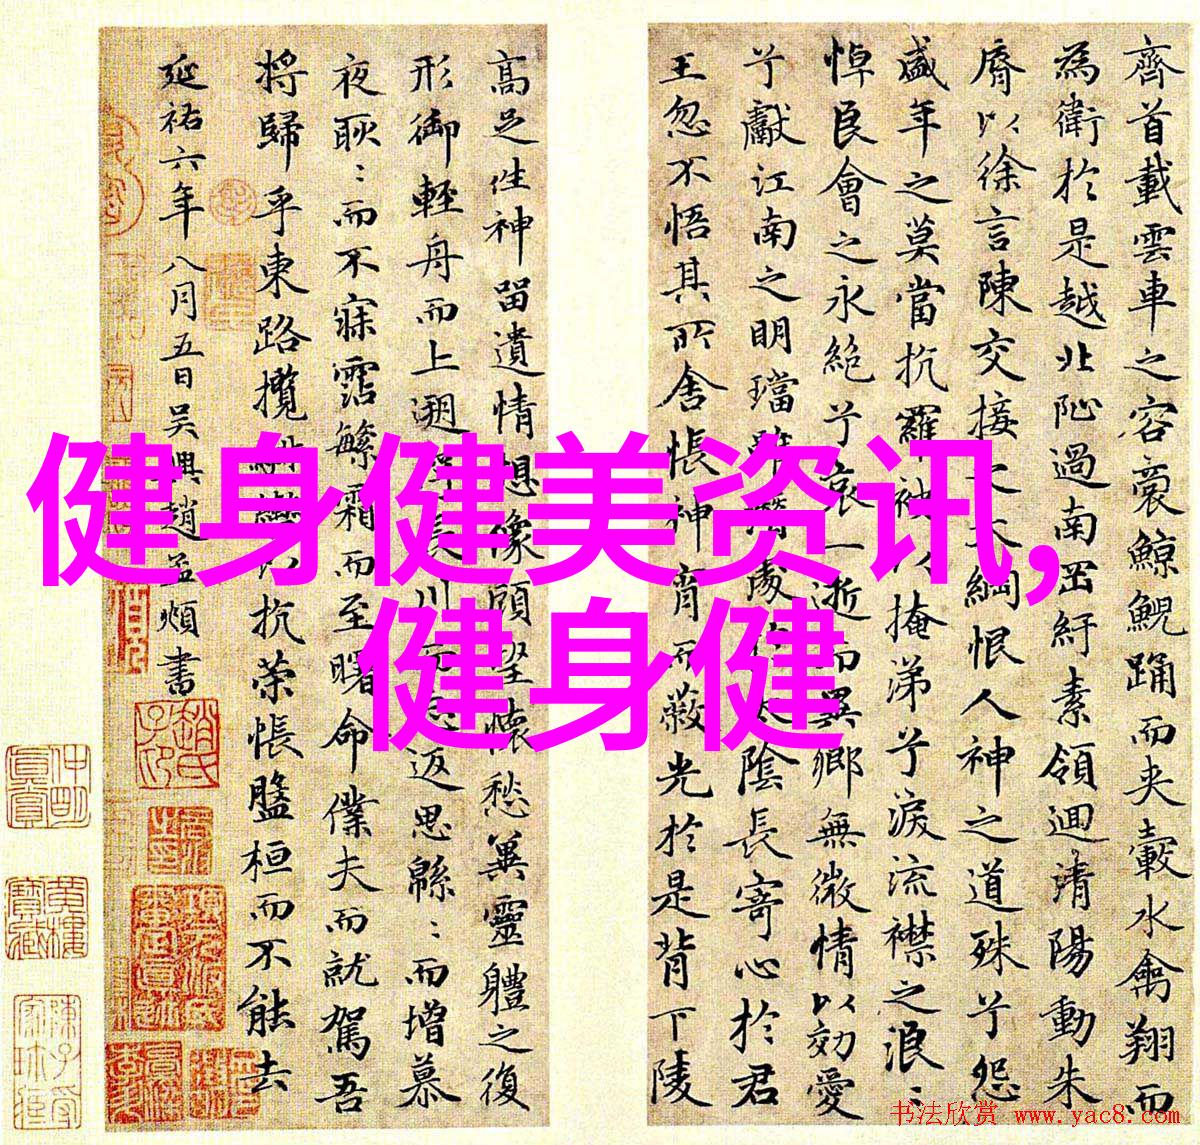 齊首載雲車之容裔鯨鯢踊而夾轂水禽翔而
為衛於是越北沚過南岡紆素領迴清陽動朱
脣以徐言陳交接之大綱恨人神之道殊兮怨
盛年之莫當抗羅袂以掩涕兮淚流襟之浪:
悼良會之永絕兮哀一逝而異鄉無微情以効愛
兮獻江南之明璫雖潛處於太陰長寄心於君
王忽不悟其所舍悵神宵而蔽光於是背下陵
高足往神留遺情想像顧望懷愁冀靈體之復
形御輕舟而上遡浮長川而忘返思緜:而增慕
夜耿:而不寐霑繁霜而至曙命僕夫而就駕吾
將歸乎東路攬騑轡以抗策悵盤桓而不能去
延祐六年八月五日吳興趙孟頫書
健身健美资讯,
健身健
书法欣赏 www.yac8.com